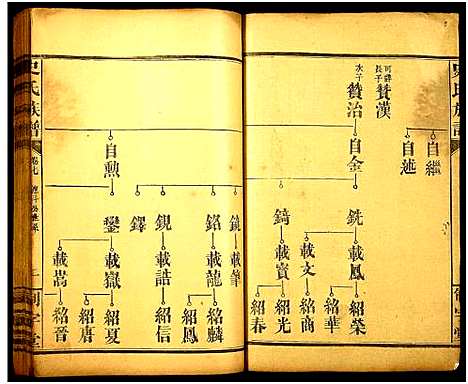 史氏族譜
可祥長子 贊漢
次子 贊治
自繼
自述
自金
銑
載鳳
紹榮
紹華
錡
載文
紹商
載寶
紹光
紹春
自勲
鏡
載筆
銘
載龍
紹麟
紹鳳
鋧
載誥
紹信
鐸
鑾
載嶽
紹夏
紹唐
載嵩
紹晉
史氏族譜
卷九